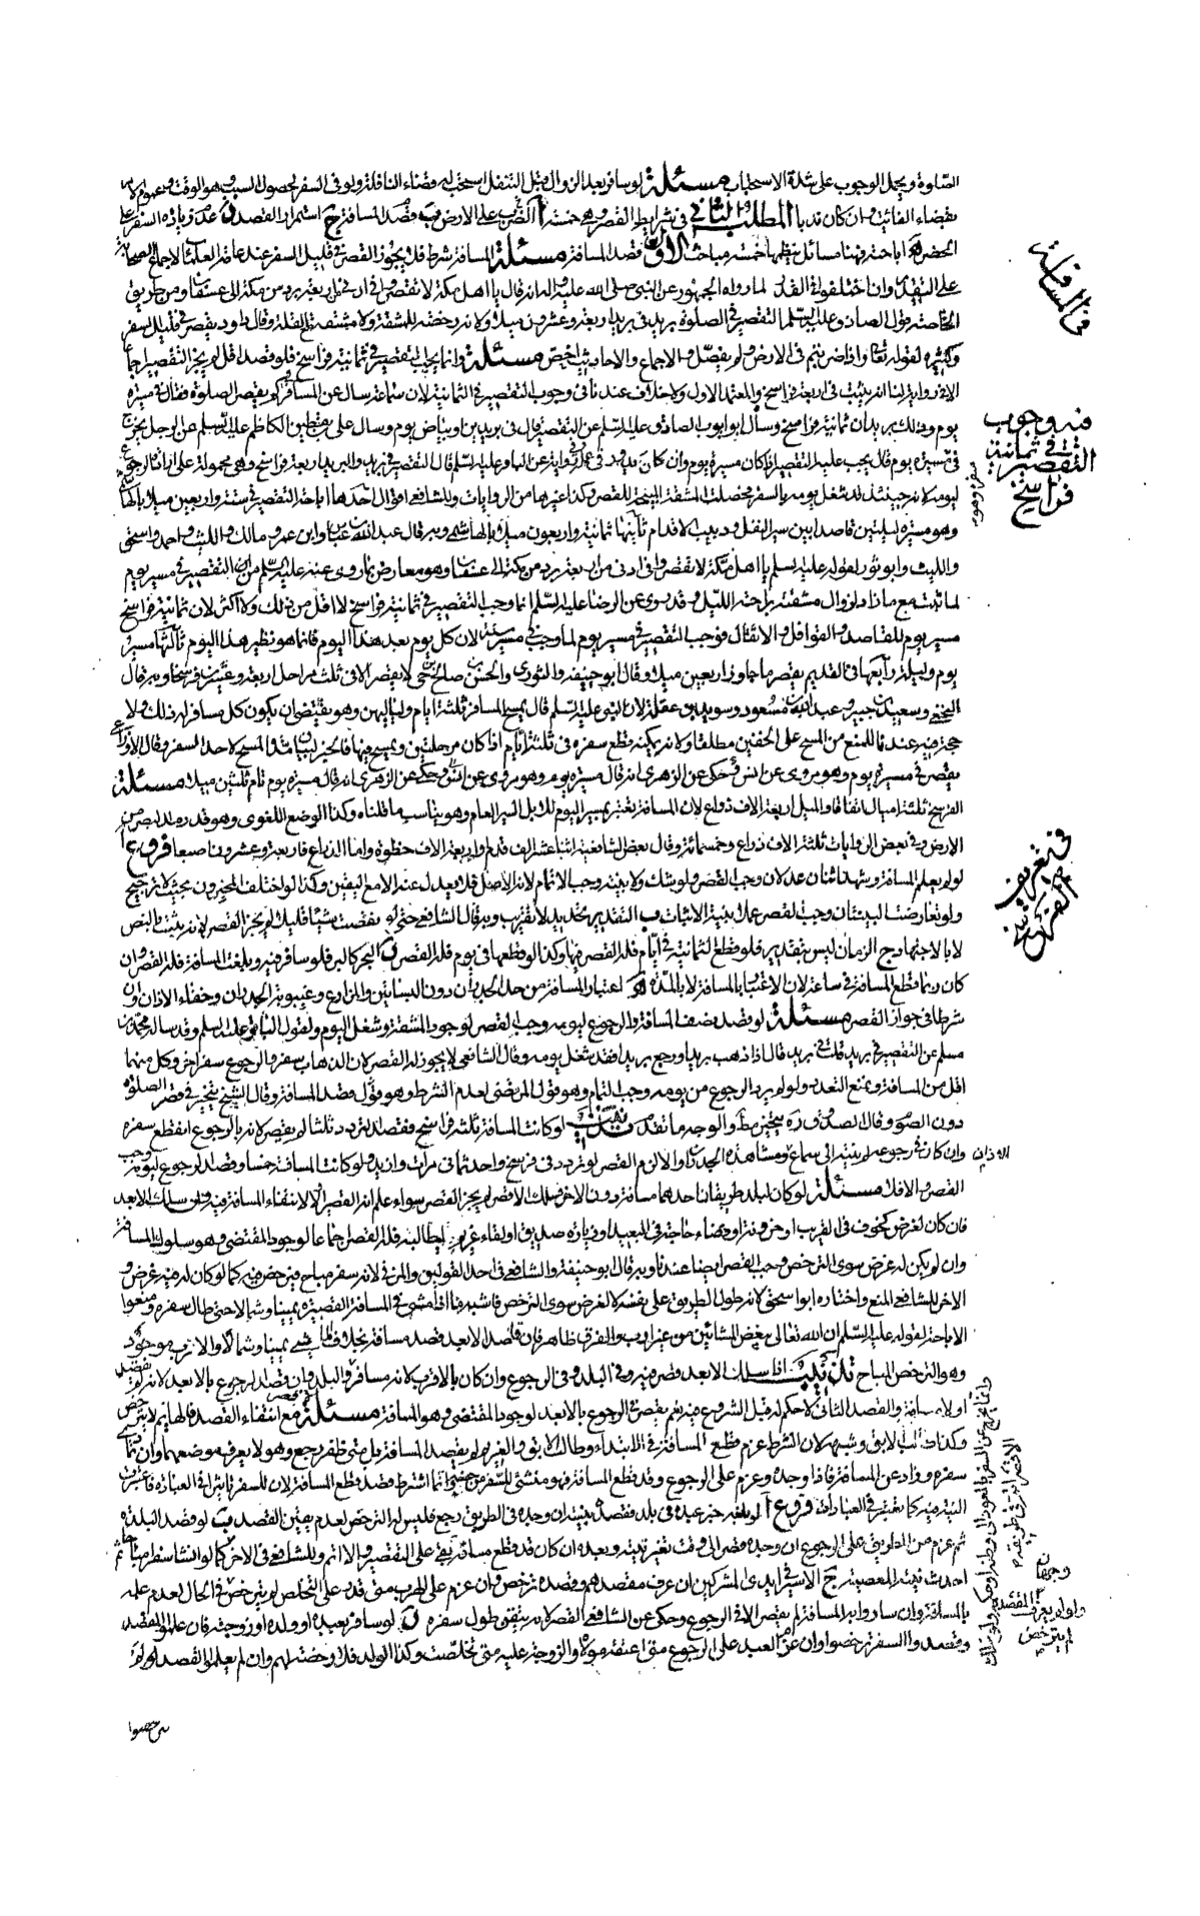 الصلوة ويحمل الوجوب على شدة الاستحباب مسئلة لو سافر بعد الزوال قبل التنفل استحب له قضاء النافلة ولو فى السفر لحصول السبب وهو الوقت وعموم الامر
بقضاء الفائت وان كان ندبا المطلب الثانى فى شرايط القصر وهى خمسة آ الضرب على الارض ب قصد المسافة ج استمرار القصد د عدم زيادة السفر على
الحضر ه اباحته فهنا مسائل ينظمها خمسة مباحث الاول قصد المسافة مسئلة المسافة شرط فلا يجوز القصر فى قليل السفر عند عامة العلماء لاجماع الصحابة
على التقدير وان اختلفوا فى القدر لما رواه الجمهور عن النبى صلى الله عليه واله انه قال يا اهل مكة لا تقصروا فى ادنى من اربعة برد من مكة الى عسفان ومن طريق
الخاصة قول الصادق عليه السلم التقصير فى الصلوة بريد فى بريد اربعة وعشرون ميلا ولانه رخصة للمشقة ولا مشقة مع القلة وقال داود يقصر فى قليل السفر
وكثيره لقوله تعالى واذا ضربتم فى الارض ولم يفصل والاجماع والاحاديث اخص مسئلة وانما يجب التقصير فى ثمانية فراسخ فلو قصد الاقل لم يجز التقصير اجماعا
الا فى رواية لنا انه يثبت فى اربعة فراسخ والمعتمد الاول ولا خلاف عندنا فى وجوب التقصير فى الثمانية لان سماعة سأل عن المسافر فى كم يقصر الصلوة فقال فى مسيرة
يوم وذلك بريدان ثمانية فراسخ وسأل ابو ايوب الصادق عليه السلم عن التقصير قال فى بريدين او بياض يوم وسال على بن يقطين الكاظم عليه السلم عن الرجل يخرج
فى مسيرة يوم قال يجب عليه التقصير اذا كان مسيرة يوم وان كان يدور فى عمله وفى رواية عن الباقر عليه السلم قال التقصير فى بريد والبريد اربعة فراسخ وهى محمولة على ارادة الرجوع
ليومه لانه حينئذ قد شغل يومه بالسفر فحصلت المشقة المبيحة للقصر وكذا غيرها من الروايات وللشافعى اقوال احدها اباحة التقصير فى ستة واربعين ميلا بالهاشمى
وهو مسيرة ليلتين قاصدا بين سير النقل ودبيب الاقدام ثانيها ثمانية واربعون ميلا بالهاشمى وبه قال عبد الله بن عباس وابن عمر ومالك والليث واحمد واسحق
والليث وابو ثور لقوله عليه السلم يا اهل مكة لا تقصروا فى ادنى من اربعة برد من مكة الى عسفان وهو معارض بما روى عنه عليه السلم من ان التقصير فى مسير يوم
مسير يوم للقاصد والقوافل والاثقال فوجب التقصير فى مسير يوم لما وجب فى مسير سنة لان كل يوم بعد هذا اليوم فانما هو نظير هذا اليوم ثالثها مسير
يوم وليلة رابعها فى القديم يقصر ما جاوز اربعين ميلا وقال ابو حنيفة والثورى والحسن بن صالح بن حى لا يقصر الا فى ثلث مراحل اربعة وعشرين فرسخا وبه قال
النخعى وسعيد بن جبير وعبد الله بن مسعود وسويد بن غفلة لان النبى عليه السلم قال يمسح المسافر ثلثة ايام ولياليهن وهو يقتضى ان يكون كل مسافر له ذلك ولا
حجة فيه عندنا للمنع من المسح على الخفين مطلقا ولانه يمكنه قطع سفره فى ثلثة ايام اذا كان مرحلتين ويمسح فيها فالخبر لبيان مدة المسح لا حد السفر وقال الاوزاعى
يقصر فى مسيرة يوم وهو مروى عن انس وحكى عن الزهرى انه قال مسيرة يوم تام ثلثين ميلا مسئلة
الفرسخ ثلثة اميال اتفاقا والميل اربعة الاف ذراع لان المسافة تعتبر بمسير اليوم للابل السير العام وهو يناسب ما قلناه وكذا الوضع اللغوى وهو قدر مد البصر من
الارض وفى بعض الروايات ثلثة الاف ذراع وخمسمائة وقال بعض الشافعية اثنا عشر الف قدم واربعة الاف خطوة واما الذراع فاربعة وعشرون اصبعا فروع آ
لو لم يعلم المسافة وشهد اثنان عدلان وجب القصر ولو شك ولا بينة وجب الاتمام لانه الاصل فلا يعدل عنه الا مع اليقين وكذا لو اختلف المخبرون بحيث لا ترجيح
ولو تعارضت البينتان وجب القصر عملا ببينة الاثبات ب التقدير تحديد لا تقريب وبه قال الشافعى حتى لو نقصت شيئا قليلا لم يجز القصر لانه يثبت بالنص
لا بالاجتهاد ج الزمان ليس بتقدير فلو قطع الثمانية فى ايام فله القصر فيها وكذا لو قطعها فى يوم فله القصر د البحر كالبر فلو سافر فيه وبلغت المسافة فله القصر وان
كان ربما قطع المسافة فى ساعة لان الاعتبار بالمسافة لا بالمدة ه اعتبار المسافة من حد الجدران دون البساتين والمزارع وغيبوبة الجدران وخفاء الاذان وان
شرطا فى جواز القصر مسئلة لو قصد نصف المسافة والرجوع ليومه وجب القصر لوجود المشقة وشغل اليوم ولقول الباقر عليه السلم وقد ساله محمد بن
مسلم عن التقصير فى بريد قلت فى بريد قال اذا ذهب بريدا ورجع بريدا فقد شغل يومه وقال الشافعى لا يجوز له القصر لان الذهاب سفر والرجوع سفر اخر وكل منهما
اقل من المسافة ونمنع التعدد ولو لم يرد الرجوع من يومه وجب التمام وهو قول المرتضى لعدم الشرط وهو قصد المسافة وقال الشيخ يتخير فى قصر الصلوة
دون الصوم وقال الصدوق ره يتخير مطلقا والوجه ما تقدم تذنيب لو كانت المسافة ثلثة فراسخ فقصد التردد ثلثا لم يقصر لانه بالرجوع انقطع سفره
وان كان فى رجوعه لم ينته الى سماع الاذان ومشاهدة الجدران والا لزم القصر لو تردد فى فرسخ واحد ثمانى مرات وازيد ولو كانت المسافة خمسا وقصد الرجوع ليومه وجب
القصر والا فلا مسئلة لو كان لبلد طريقان احدهما مسافة دون الاخر فسلك الاقصر لم يجز القصر سواء علم انه القصير او لا لانتفاء المسافة فيه وان سلك الابعد
فان كان لغرض كخوف فى القريب او حزونة او قضاء حاجة فى البعيد او زيارة صديق او لقاء غريم ليطالبه فله القصر اجماعا لوجود المقتضى وهو سلوك المسافة
وان لم يكن له غرض سوى الترخص وجب القصر ايضا عندنا وبه قال ابو حنيفة والشافعى فى احد القولين والمزنى لانه سفر مباح فترخص فيه كما لو كان له فيه غرض و
الاخر للشافعى المنع واختاره ابو اسحق لانه طول الطريق على نفسه لا لغرض سوى الترخص فاشبه ما اذا مشى فى المسافة القصيرة يمينا وشمالا حتى طال سفره ومنعوا
الاباحة لقوله عليه السلم ان الله تعالى يبغض المشائين من غير ارب والفرق ظاهر فان قاصد الابعد قصد مسافة بخلاف الماشى يمينا وشمالا والارب موجود
وهو الترخص المباح تذنيب اذا سلك الابعد قصر فيه وفى البلد وفى الرجوع وان كان بالاقرب لانه مسافر
اولا مسافة والقصد الثانى لا حكم له قبل الشروع فيه نعم يقصر فى الرجوع بالابعد لوجود المقتضى وهو المسافة مسئلة مع انتفاء القصد فالهائم لا يترخص
وكذا طالب الابق وشبهه لان الشرط عزم قطع المسافة فى الابتداء وطالب الابق والغريم لم يقصد المسافة بل متى ظفر رجع وهو لا يعرف موضعهما وان تمادى
سفره وزاد عن المسافة فاذا وجده وعزم على الرجوع وقد قطع المسافة فهو منشئ للسفر من حينئذ وانما اشترط قصد قطع المسافة لان للسفر تاثيرا فى العبادة فاعتبرت
النية فيه كما تعتبر فى العبادات فروع آ لو بلغه خبر عبده فى بلد فقصده بنية ان وجده فى الطريق رجع فليس له الترخص لعدم يقين القصد ب لو قصد البلد
ثم عزم من الطريق على الرجوع ان وجده قصر الى وقت تغير نيته وبعده ان كان قد قطع مسافة بقى على التقصير والا اتم وللشافعى فى الاخر وجهان كما لو انشا سفرا مباحا ثم
احدث نية المعصية ج الاسير فى ايدى المشركين ان عرف مقصدهم وقصده ترخص وان عزم على الهرب متى قدر على التخلص لم يترخص فى الحال لعدم علمه
بالمسافة وان ساروا به المسافة لم يقصر الا فى الرجوع وحكى عن الشافعى القصر لانه تيقن طول سفره د لو سافر بعبده او ولده او زوجته فان علموا المقصد
وقصدوا السفر ترخصوا وان عزم العبد على الرجوع متى اعتقه مولاه والزوجة عليه متى تخلصت وكذا الولد فلا رخصة لهم وان لم يعلموا القصد لم
فى المسافة
فى وجوب
التقصير فى ثمانية
فراسخ
فى تعريف
الفرسخ